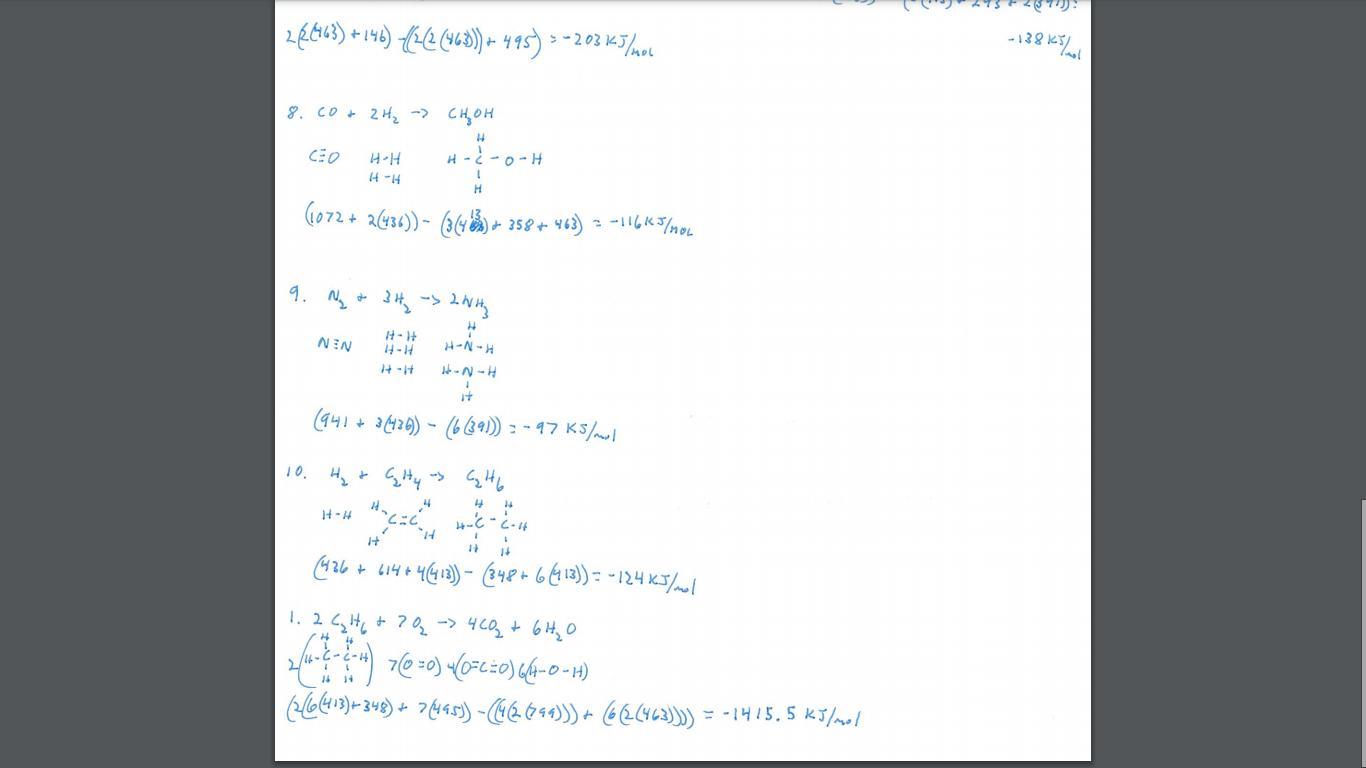 2(2(463) + 146) - ((2(2(463)) + 495) = -203 KJ/mol
-138 KJ/mol
8. CO + 2H₂ -> CH₃OH
H
C≡O H-H H - C - O - H
H-H
H
(1072 + 2(436)) - (3(413) + 358 + 463) = -116 KJ/mol
9. N₂ + 3H₂ -> 2NH₃
H
H-H
N≡N H-H H-N-H
H-H H-N-H
H
(941 + 3(436)) - (6(391)) = -97 KJ/mol
10. H₂ + C₂H₄ -> C₂H₆
H H H H
H-H C=C H-C-C-H
H H H H
(436 + 614 + 4(413)) - (348 + 6(413)) = -124 KJ/mol
1. 2 C₂H₆ + 7O₂ -> 4CO₂ + 6H₂O
H H
2(H-C-C-H) 7(O=O) 4(O=C=O) 6(H-O-H)
H H
(2(6(413)+348) + 7(495)) - ((4(2(799))) + (6(2(463)))) = -1415.5 KJ/mol